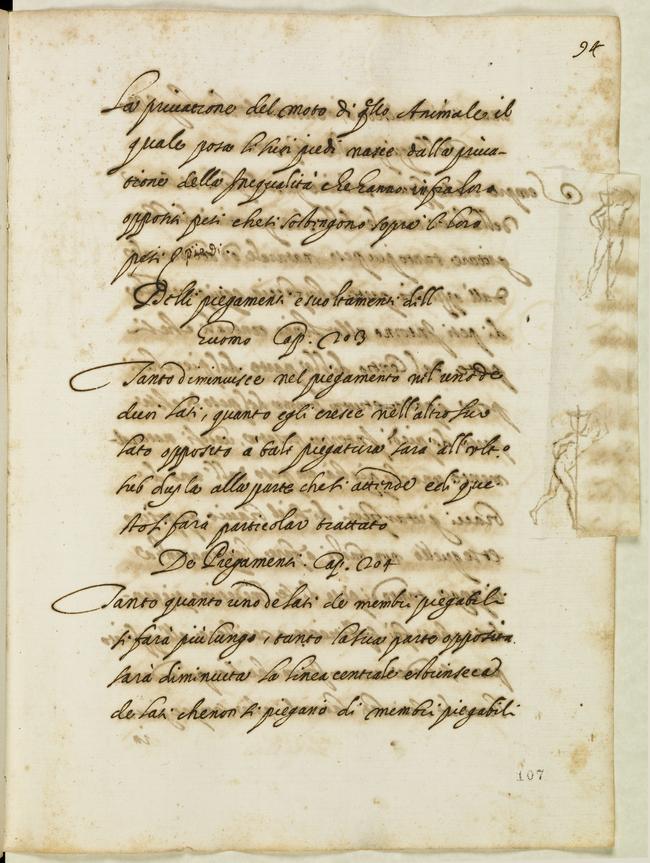 94
La privatione del moto di qllo Animale il
quale posa li suoi piedi nasce dalla priva-
tione della Inequalità che hanno infra loro
oppositi pesi che si sostengono sopra li loro
pesi piedi
Delli piegamenti e svoltamenti dell
huomo Cap. 203
Tanto diminuisce nel piegamento nel uno de
duoi lati, quanto egli cresce nell'altro suo
lato opposito à tale piegatura sarà all'ult.o
sub dupla alla parte che si attende e di que-
sto si farà particolar trattato
De Piegamenti. Cap. 204
Tanto quanto uno de lati de membri piegabili
si farà più lungo, tanto la sua parte opposita
sarà diminuita la linea centrale estrinseca
de lati che non si piegano di membri piegabili
107